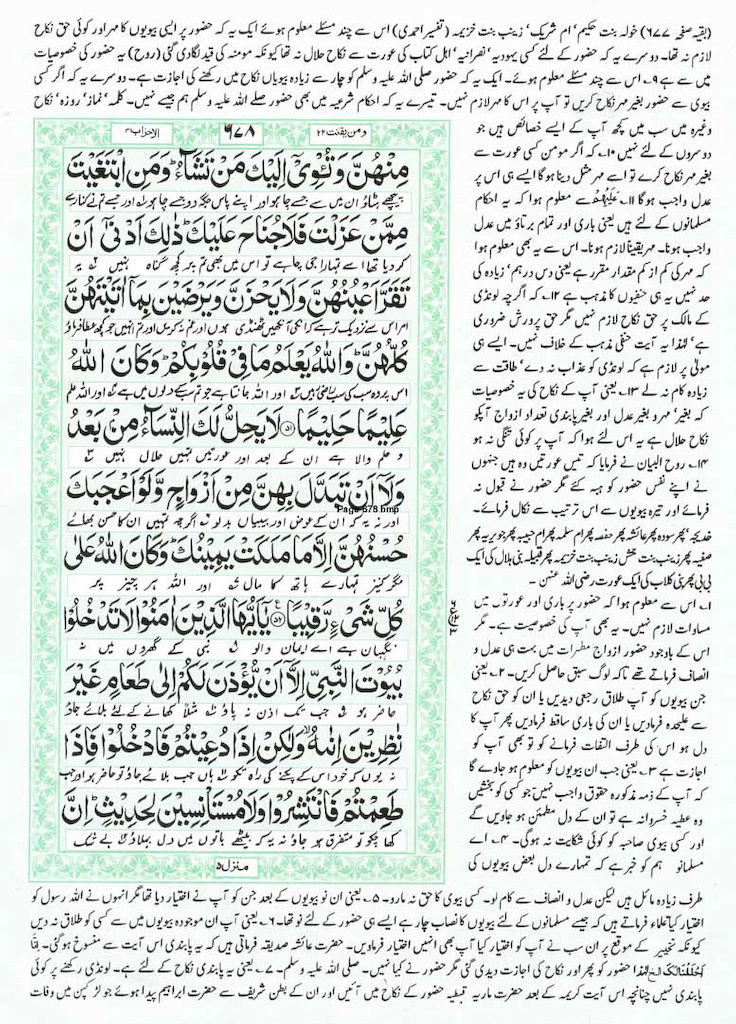 (بقیہ صفحہ ۶۷۷) خولہ بنت حکیم' ام شریک' زینب بنت خزیمہ (تفسیر احمدی) اس سے چند مسئلے معلوم ہوئے ایک یہ کہ حضور پر ایسی بیویوں کا مہر اور کوئی حق نکاح
لازم نہ تھا۔ دوسرے یہ کہ حضور کے لئے کسی یہودیہ' نصرانیہ' اہل کتاب کی عورت سے نکاح حلال نہ تھا کیونکہ مومنہ کی قید لگادی گئی (روح) یہ حضور کی خصوصیات
میں سے ہے ۹۔ اس سے چند مسئلے معلوم ہوئے۔ ایک یہ کہ حضور صلی اللہ علیہ وسلم کو چار سے زیادہ بیویاں نکاح میں رکھنے کی اجازت ہے۔ دوسرے یہ کہ اگر کسی
بیوی سے حضور بغیر مہر نکاح کریں تو آپ پر اس کا مہر لازم نہیں۔ تیسرے یہ کہ احکام شرعیہ میں بھی حضور صلے اللہ علیہ وسلم ہم جیسے نہیں۔ کلمہ' نماز' روزہ' نکاح
وغیرہ میں سب میں کچھ آپ کے ایسے خصائص ہیں جو
دوسروں کے لئے نہیں ۱۰۔ کہ اگر مومن کسی عورت سے
بغیر مہر نکاح کرے تو اسے مہر مثل دینا ہو گا ایسے ہی اس پر
عدل واجب ہو گا ۱۱۔ عَلَيْهِمْ سے معلوم ہوا کہ یہ احکام
مسلمانوں کے لئے ہیں یعنی باری اور تمام برتاؤ میں عدل
واجب ہونا۔ مہر یقیناً لازم ہونا۔ اس سے یہ بھی معلوم ہوا
کہ مہر کی کم از کم مقدار مقرر ہے یعنی دس درہم' زیادہ کی
حد نہیں یہ ہی حنفیوں کا مذہب ہے ۱۲۔ کہ اگرچہ لونڈی
کے مالک پر حق نکاح لازم نہیں مگر حق پرورش ضروری
ہے' لہذا یہ آیت حنفی مذہب کے خلاف نہیں۔ ایسے ہی
مولی پر لازم ہے کہ لونڈی کو عذاب نہ دے' طاقت سے
زیادہ کام نہ لے ۱۳۔ یعنی آپ کے نکاح کی یہ خصوصیات
کہ بغیر' مہر و بغیر عدل اور بغیر پابندی تعداد ازواج آپکو
نکاح حلال ہے یہ اس لئے ہوا کہ آپ پر کوئی تنگی نہ ہو
۱۴۔ روح البیان نے فرمایا کہ تیس عورتیں وہ ہیں جنہوں
نے اپنے نفس حضور کو ہبہ کئے مگر حضور نے قبول نہ
فرمائے اور تیرہ بیویوں سے اس ترتیب سے نکاح فرمائے۔
خدیجہ' پھر سودہ پھر عائشہ پھر حفصہ پھر ام سلمہ پھر ام حبیبہ پھر جویریہ پھر
صفیہ پھر زینب بنت جحش زینب بنت خزیمہ پھر قبیلہ بنی ہلال کی ایک
بی بی پھر بنی کلاب کی ایک عورت رضی اللہ عنہن۔
۱۔ اس سے معلوم ہوا کہ حضور پر باری اور عورتوں میں
مساوات لازم نہیں۔ یہ بھی آپ کی خصوصیت ہے۔ مگر
اس کے باوجود حضور ازواج مطہرات میں بہت ہی عدل و
انصاف فرماتے تھے تاکہ لوگ سبق حاصل کریں۔ ۲۔ یعنی
جن بیویوں کو آپ طلاق رجعی دیدیں یا ان کو حق نکاح
سے علیحدہ فرمادیں یا ان کی باری ساقط فرمادیں پھر آپ کا
دل ہو اس کی طرف التفات فرمانے کو تو بھی آپ کو
اجازت ہے ۳۔ یعنی جب ان بیویوں کو معلوم ہو جاوے گا
کہ آپ کے ذمہ مذکورہ حقوق واجب نہیں جو کسی کو بخشیں
وہ عطیہ خسروانہ ہے تو ان کے دل مطمئن ہو جاویں گے
اور کسی بیوی صاحبہ کو کوئی شکایت نہ ہوگی۔ ۴۔ اے
مسلمانو ہم کو خبر ہے کہ تمہارے دل بعض بیویوں کی
ومن یقنت ۲۲ ۶۷۸ الاحزاب ۳۳
مِنْهُنَّ وَتُـْٔوِىْٓ اِلَيْكَ مَنْ تَشَآءُ ؕ وَمَنِ ابْتَغَيْتَ
پیچھے ہٹاؤ ان میں سے جسے چاہو اور اپنے پاس جگہ دو جسے چاہو اور جسے تم نے کنارے
مِمَّنْ عَزَلْتَ فَلَا جُنَاحَ عَلَيْكَ ؕ ذٰلِكَ اَدْنٰٓى اَنْ
کردیا تھا اسے تمہارا جی چاہے تو اس میں بھی تم پر کچھ گناہ نہیں یہ
تَقَرَّ اَعْيُنُهُنَّ وَلَا يَحْزَنَّ وَيَرْضَيْنَ بِمَآ اٰتَيْتَهُنَّ
امر اس سے نزدیک تر ہے کہ انکی آنکھیں ٹھنڈی ہوں اور غم نہ کریں اور تم انہیں جو کچھ عطا فرماؤ
كُلُّهُنَّ ؕ وَاللّٰهُ يَعْلَمُ مَا فِىْ قُلُوْبِكُمْ ؕ وَكَانَ اللّٰهُ
اس پر وہ سب کی سب راضی رہیں اور اللہ جانتا ہے جو تم سب کے دلوں میں ہے اور اللہ علم
عَلِيْمًا حَلِيْمًا ﴿۵۱﴾ لَا يَحِلُّ لَكَ النِّسَآءُ مِنْۢ بَعْدُ
و حلم والا ہے ان کے بعد اور عورتیں تمہیں حلال نہیں
وَلَآ اَنْ تَبَدَّلَ بِهِنَّ مِنْ اَزْوَاجٍ وَّلَوْ اَعْجَبَكَ
Page-678.bmp
اور نہ یہ کہ ان کے عوض اور بیبیاں بدلو اگرچہ تمہیں ان کا حسن بھائے
حُسْنُهُنَّ اِلَّا مَا مَلَكَتْ يَمِيْنُكَ ؕ وَكَانَ اللّٰهُ عَلٰى
مگر کنیز تمہارے ہاتھ کا مال اور اللہ ہر چیز پر
كُلِّ شَىْءٍ رَّقِيْبًا ﴿۵۲﴾ يٰٓاَيُّهَا الَّذِيْنَ اٰمَنُوْا لَا تَدْخُلُوْا
نگہبان ہے اے ایمان والو نبی کے گھروں میں نہ
بُيُوْتَ النَّبِىِّ اِلَّآ اَنْ يُّؤْذَنَ لَكُمْ اِلٰى طَعَامٍ غَيْرَ
حاضر ہو جب تک اذن نہ پاؤ مثلاً کھانے کے لئے بلائے جاؤ
نٰظِرِيْنَ اِنٰىهُ ۙ وَلٰكِنْ اِذَا دُعِيْتُمْ فَادْخُلُوْا فَاِذَا
نہ یوں کہ خود اس کے پکنے کی راہ تکو ہاں جب بلائے جاؤ تو حاضر ہو اور جب
طَعِمْتُمْ فَانْتَشِرُوْا وَلَا مُسْتَاْنِسِيْنَ لِحَدِيْثٍ ؕ اِنَّ
کھا چکو تو متفرق ہو جاؤ نہ یہ کہ بیٹھے باتوں میں دل بہلاؤ بے شک
منزل ۵
طرف زیادہ مائل ہیں لیکن عدل و انصاف سے کام لو۔ کسی بیوی کا حق نہ مارو۔ ۵۔ یعنی ان نو بیویوں کے بعد جن کو آپ نے اختیار دیا تھا مگر انہوں نے اللہ رسول کو
اختیار کیا علماء فرماتے ہیں کہ جیسے مسلمانوں کے لئے بیویوں کا نصاب چار ہے ایسے ہی حضور کے لئے نو تھا۔ ۶۔ یعنی آپ ان موجودہ بیویوں میں سے کسی کو طلاق نہ دیں
کیونکہ تخییر کے موقع پر ان سب نے آپ کو اختیار کیا آپ بھی انہیں اختیار فرمادیں۔ حضرت عائشہ صدیقہ فرماتی ہیں کہ یہ پابندی اس آیت سے منسوخ ہو گئی۔ اِنَّا
اَحْلَلْنَا لَكَ الخ لہذا حضور کو پھر اور نکاح کی اجازت دیدی گئی مگر حضور نے کیا نہیں۔ صلی اللہ علیہ وسلم۔ ۷۔ یعنی یہ پابندی نکاح کے لئے ہے۔ لونڈی رکھنے پر کوئی
پابندی نہیں چنانچہ اس آیت کریمہ کے بعد حضرت ماریہ قبطیہ حضور کے نکاح میں آئیں اور ان کے بطن شریف سے حضرت ابراہیم پیدا ہوئے جو لڑکپن میں وفات